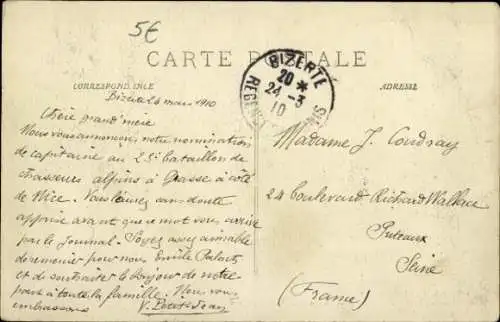 5€
CARTE POSTALE
CORRESPONDANCE
ADRESSE
BIZERTE
20 *
24 - 3
10
REGENCE
Bizerte 6 mars 1910
Chère grand'mère
Nous vous annonçons notre nomination
de capitaine au 25e bataillon de
chasseurs alpins à Grasse à côté
de Nice. Vous l'aurez sans doute
appris avant que ce mot vous arrive
par le Journal. Soyez assez aimable
de remercier pour nous Emile
et de souhaiter le bonjour de notre
part à toute la famille. Nous vous
embrassons
Madame J. Coudray
24 boulevard Richard Wallace
Puteaux
Seine
(France)